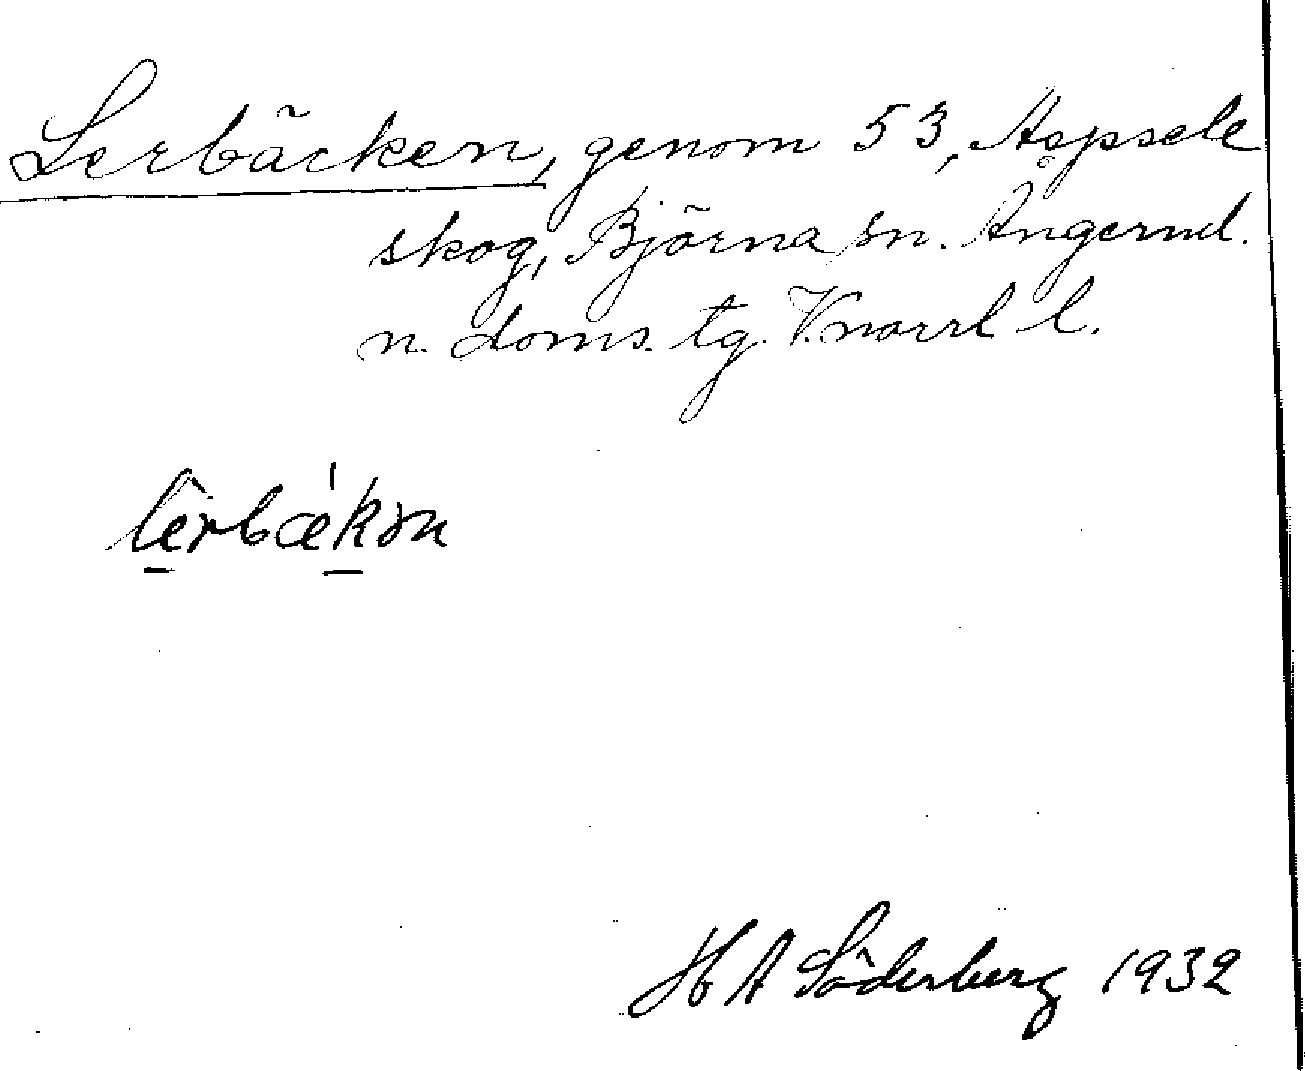 Lerbäcken, genom 53, Aspsele
skog, Björna sn. Ångerml.
n. doms. tg. V.norrl l.
lèrbækən
H A Söderberg 1932